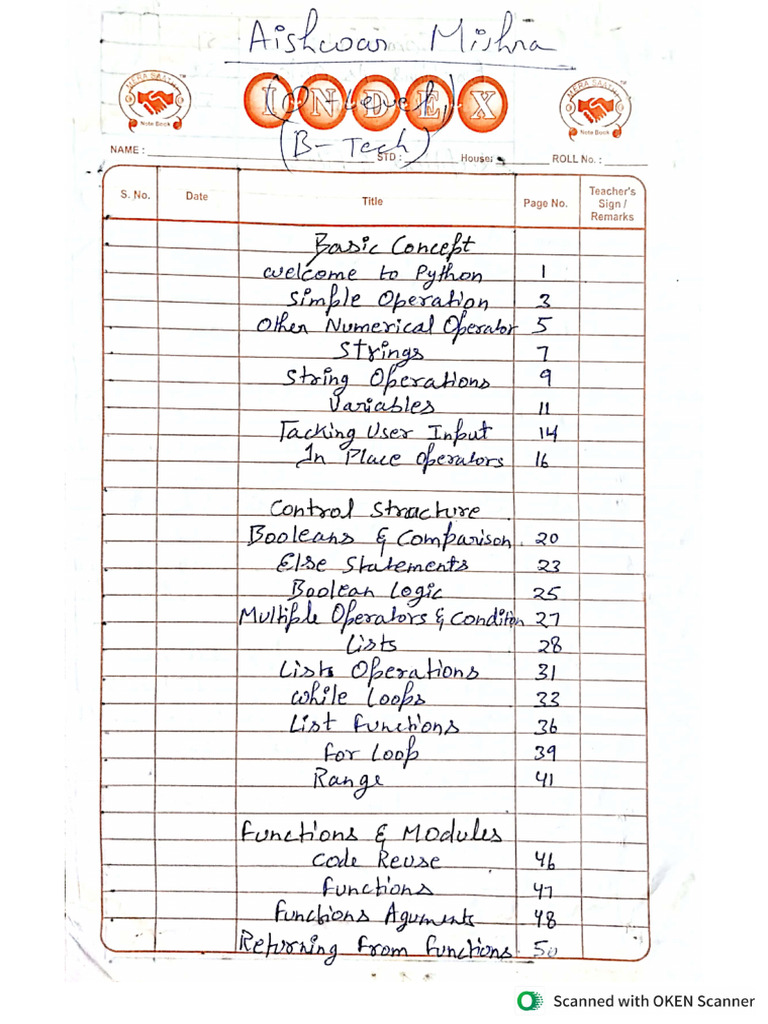 Aishwar Mishra
MERA SAATHI
Note Book
INDEX
(O-level)
MERA SAATHI
Note Book
(B-Tech)
NAME : STD : House: ROLL No. :
S. No. Date Title Page No. Teacher's Sign / Remarks
Basic Concept
Welcome to Python 1
Simple Operation 3
Other Numerical Operator 5
Strings 7
String Operations 9
Variables 11
Tacking User Input 14
In Place Operators 16
Control Structure
Booleans & Comparison. 20
Else Statements 23
Boolean Logic 25
Multiple Operators & Condition 27
Lists 28
Lists Operations 31
While Loops 33
List Functions 36
For Loop 39
Range 41
Functions & Modules
Code Reuse 46
Functions 47
Functions Aguments 48
Returning from functions 50
Scanned with OKEN Scanner